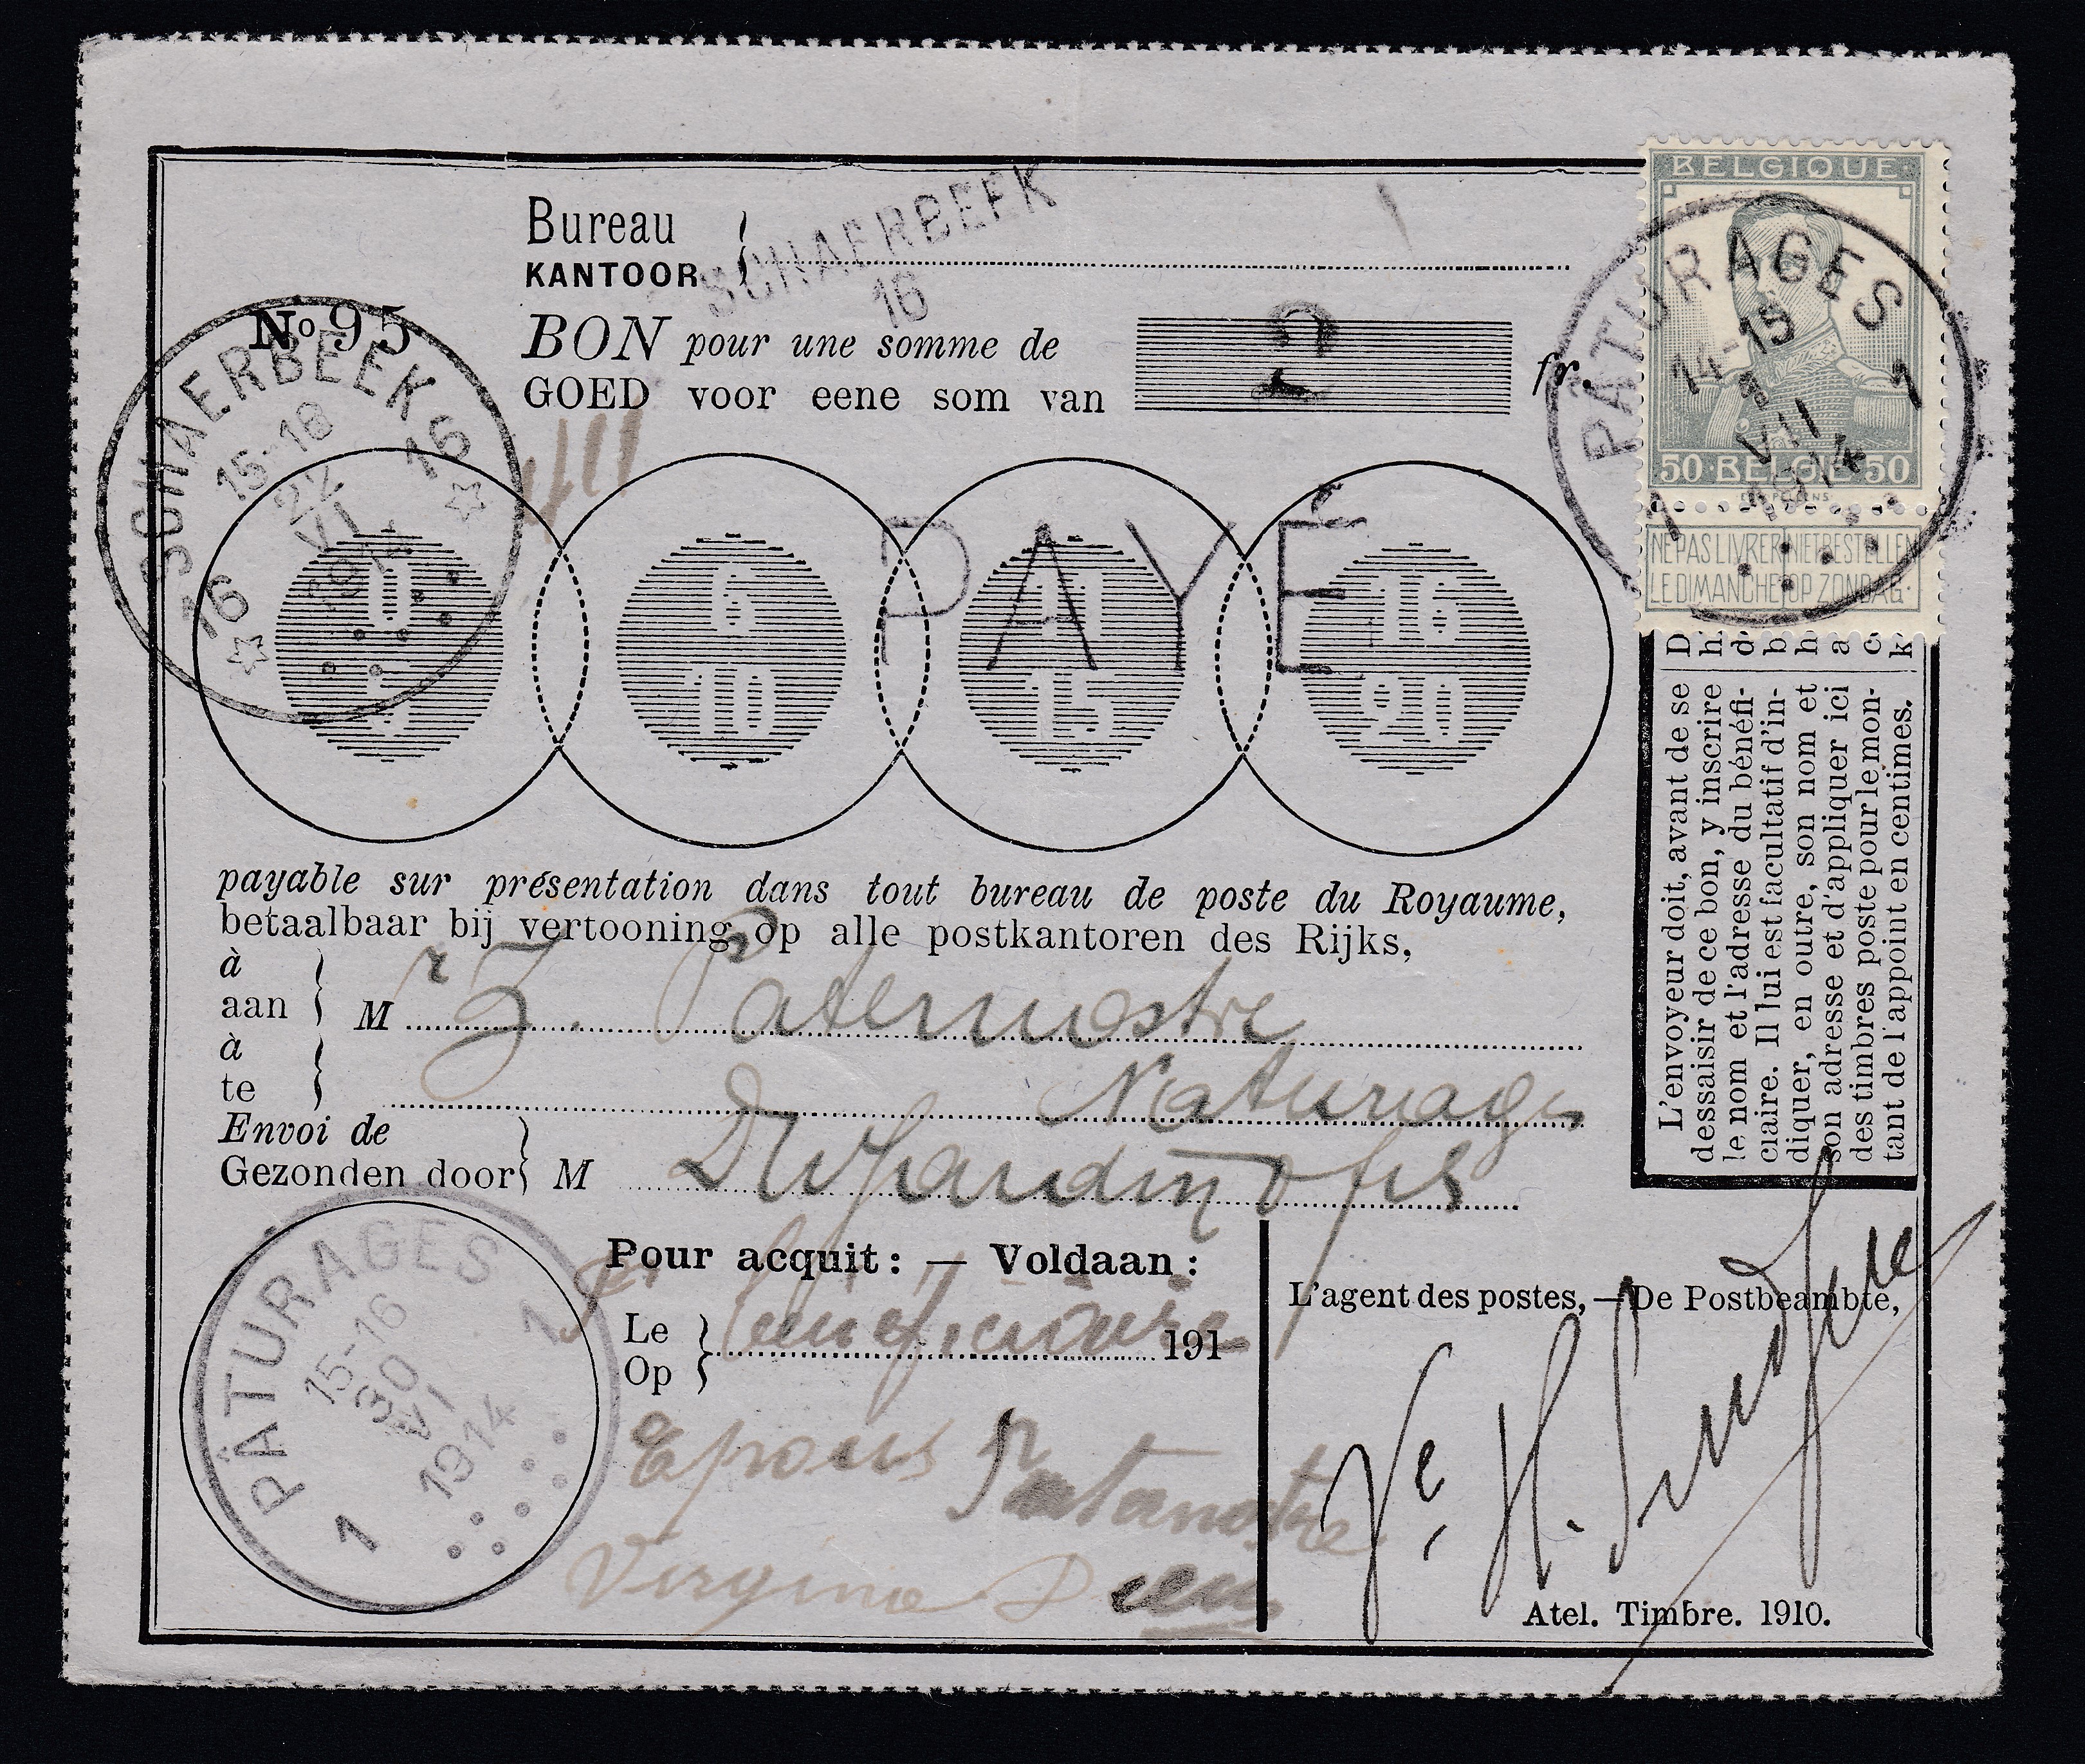 BELGIQUE
50 BELGIË 50
NE PAS LIVRER NIET BESTELLEN
LE DIMANCHE OP ZONDAG
PÂTURAGES
14-15
1
VII
1914
1 1
Bureau
KANTOOR
SCHAERBEEK
16
No 95
BON pour une somme de
GOED voor eene som van
2 fr.
SCHAERBEEK
15-18
22
VI
1914
16 16
PAYÉ
6
10
11
15
16
20
payable sur présentation dans tout bureau de poste du Royaume,
betaalbaar bij vertooning op alle postkantoren des Rijks,
à
aan
M r Z. Paternostre
à
te
Paturages
Envoi de
Gezonden door
M
fils
D
h
d
b
h
a
c
k
L'envoyeur doit, avant de se
dessaisir de ce bon, y inscrire
le nom et l'adresse du bénéfi-
ciaire. Il lui est facultatif d'in-
diquer, en outre, son nom et
son adresse et d'appliquer ici
des timbres poste pour le mon-
tant de l'appoint en centimes.
Pour acquit: — Voldaan:
Le
Op
bénéficiaire
191
Epouse Paternostre
Virginie
PÂTURAGES
15-16
30
VI
1914
1 1
L'agent des postes, — De Postbeambte,
Ve H.
Atel. Timbre. 1910.